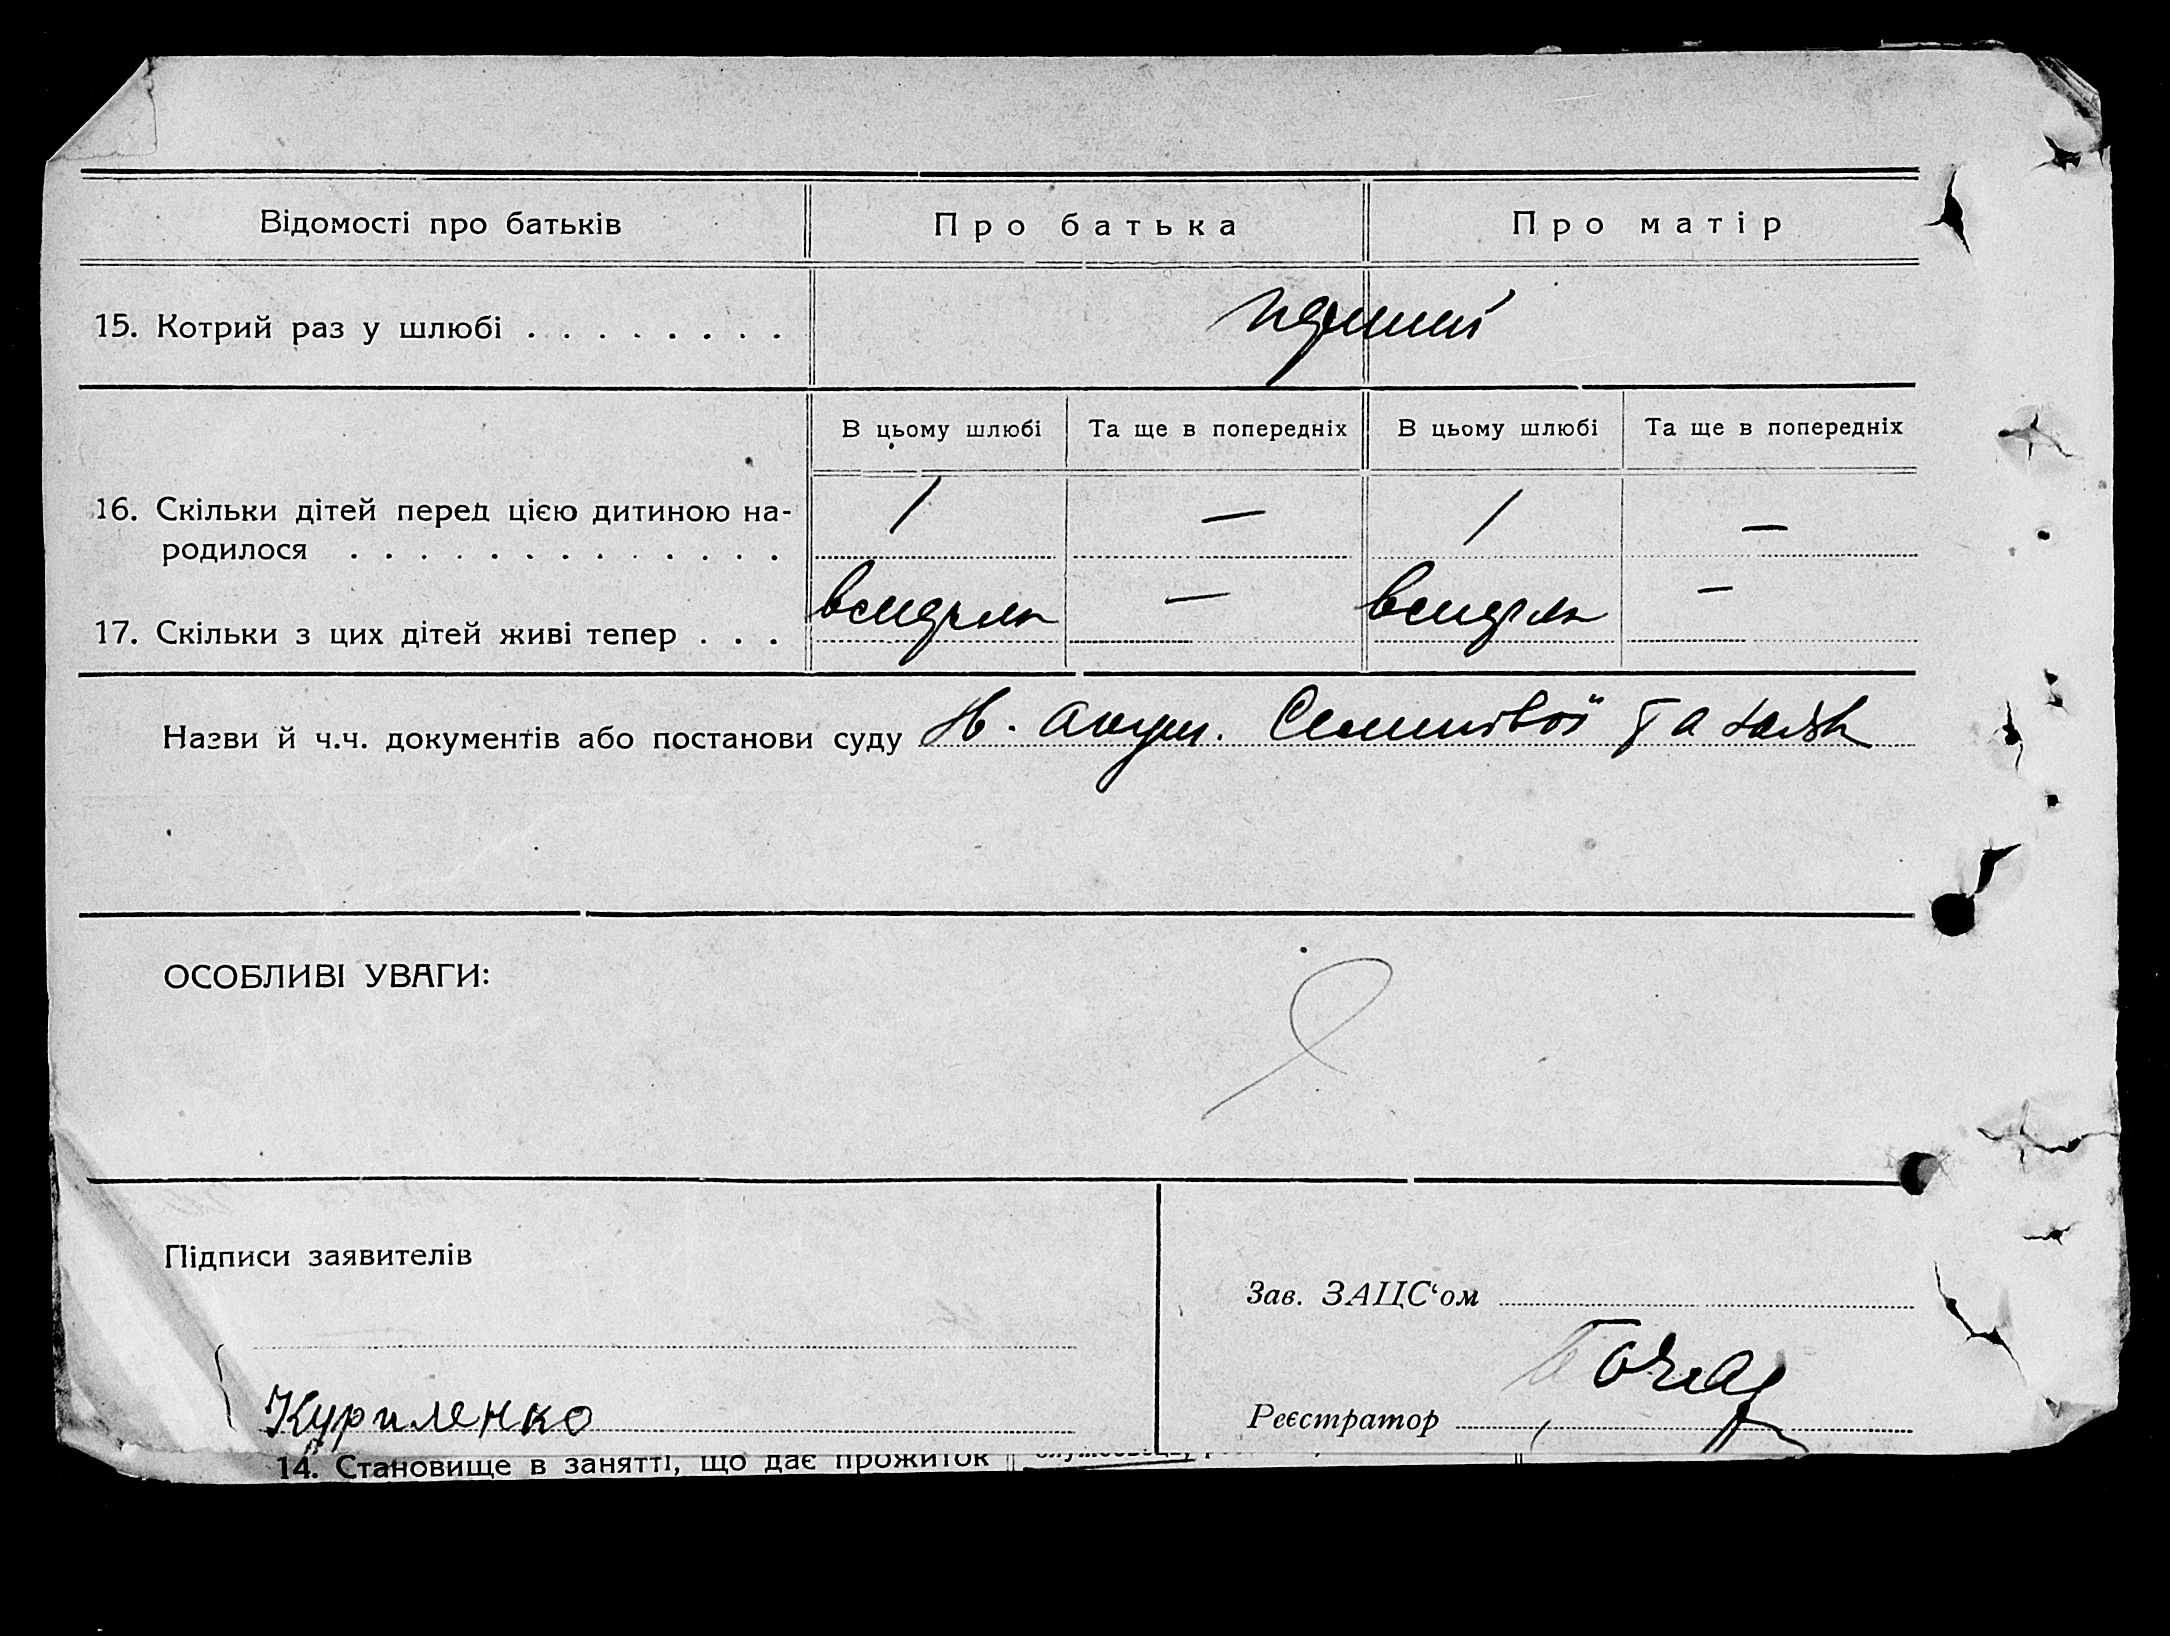 Відомості про батьків Про батька Про матір
15. Котрий раз у шлюбі . . . . . . . .
В цьому шлюбі Та ще в попередніх В цьому шлюбі Та ще в попередніх
16. Скільки дітей перед цією дитиною на- 1 — 1 —
родилося . . . . . . . . . . . . .
17. Скільки з цих дітей живі тепер . . . вмерла — вмерла —
Назви й ч.ч. документів або постанови суду
ОСОБЛИВІ УВАГИ:
Підписи заявителів
Зав. ЗАЦС‘ом
Куриленко
Реєстратор
14. Становище в занятті, що дає прожиток